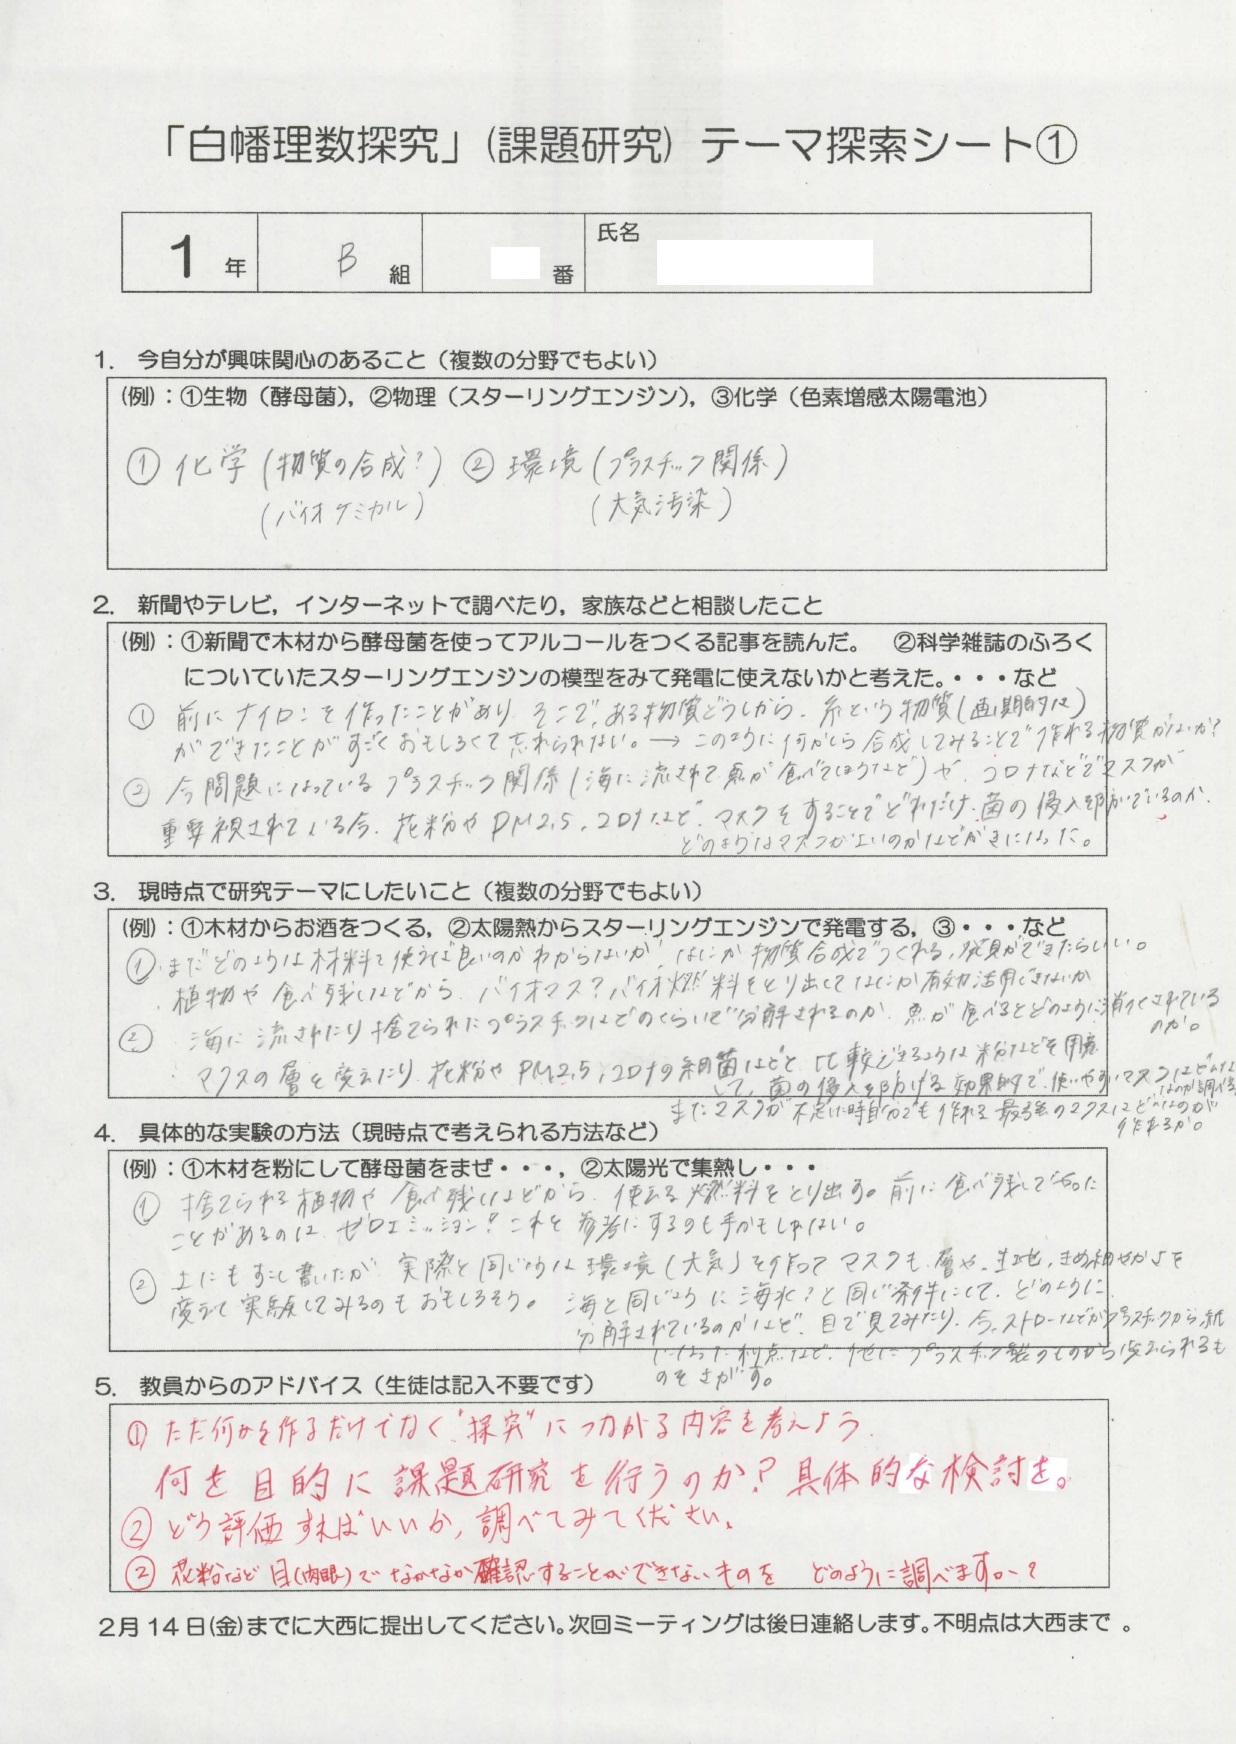 「白幡理数探究」(課題研究) テーマ探索シート①
1 年 B 組 番 氏名
1. 今自分が興味関心のあること（複数の分野でもよい）
（例）：①生物（酵母菌），②物理（スターリングエンジン），③化学（色素増感太陽電池）
① 化学（物質の合成？） ② 環境（プラスチック関係）
（バイオケミカル） （大気汚染）
2. 新聞やテレビ，インターネットで調べたり，家族などと相談したこと
（例）：①新聞で木材から酵母菌を使ってアルコールをつくる記事を読んだ。 ②科学雑誌のふろく
についていたスターリングエンジンの模型をみて発電に使えないかと考えた。・・・など
① 前にナイロンを作ったことがあり、そこで、ある物質どうしから、糸という物質（画期的な）
ができたことがすごくおもしろくて忘れられない。→このように何かしら合成してみることで作れる物質がないか？
② 今問題になっているプラスチック関係（海に流されて魚が食べてしまうなど）や、コロナなどでマスクが
重要視されている今、花粉やPM2.5、コロナなど、マスクをすることでどれだけ菌の侵入を防いでいるのか、
どのようなマスクがよいのかなどがきになった。
3. 現時点で研究テーマにしたいこと（複数の分野でもよい）
（例）：①木材からお酒をつくる，②太陽熱からスターリングエンジンで発電する，③・・・など
① まだどのような材料を使えば良いのかわからないが、なにか物質合成でつくれる、発見ができたらいい。
植物や食べ残しなどから、バイオマス？バイオ燃料をとり出してなにか有効活用できないか
② 海に流されたり捨てられたプラスチックはどのくらいで分解されるのか、魚が食べるとどのように消化されている
のか。
マクスの層を変えたり、花粉やPM2.5、コロナの細菌などと比較できるような粉などを用意
して、菌の侵入を防げる効果的で、使いやすいマスクはどんな
なのか調べる
またマスクが不足した時自分でも作れる最強のマクスはどんなのが
作れるか。
4. 具体的な実験の方法（現時点で考えられる方法など）
（例）：①木材を粉にして酵母菌をまぜ・・・，②太陽光で集熱し・・・
① 捨てられる植物や食べ残しなどから、使える燃料をとり出す。前に食べ残しで
ことがあるのは、ゼロエミッション？これを参考にするのも手かもしれない。
② 上にもすこし書いたが、実際と同じような環境（大気）を作ってマスクも、層や、生地、きめ細やかさを
変えて実験してみるのもおもしろそう。海と同じように海水？と同じ条件にして、どのように
分解されているのかなど、目で見てみたり、今、ストローなどがプラスチックから、紙
になった利点など、他にプラスチック製のものから変えられるも
のをさがす。
5. 教員からのアドバイス（生徒は記入不要です）
① ただ何かを作るだけでなく"探究"につながる内容を考えよう．
何を目的に課題研究を行うのか？具体的な検討を。
② どう評価すればいいか，調べてみてください。
② 花粉など目(肉眼)でなかなか確認することができないものを どのように調べますか〜？
2月14日(金)までに大西に提出してください。次回ミーティングは後日連絡します。不明点は大西まで 。